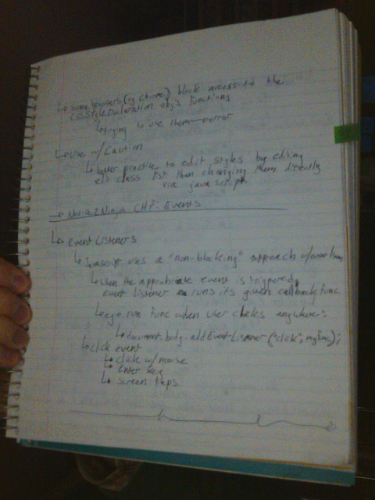 ↳ some browsers (eg chrome) block access to the
CSSStyleDeclaration obj's functions
↳ trying to use them → error
↳ use w/ caution
↳ better practice to edit styles by editing
el's class list than changing them directly
via javascript
Ninja CH7: Events
↳ Event Listeners
↳ Javascript uses a "non-blocking" approach w/
↳ when the appropriate event is triggered,
event listener runs its given callback func
↳ eg. run func when user clicks anywhere:
↳ document.body.addEventListener("click", myfunc);
↳ click event
↳ click w/ mouse
↳ enter key
↳ screen taps